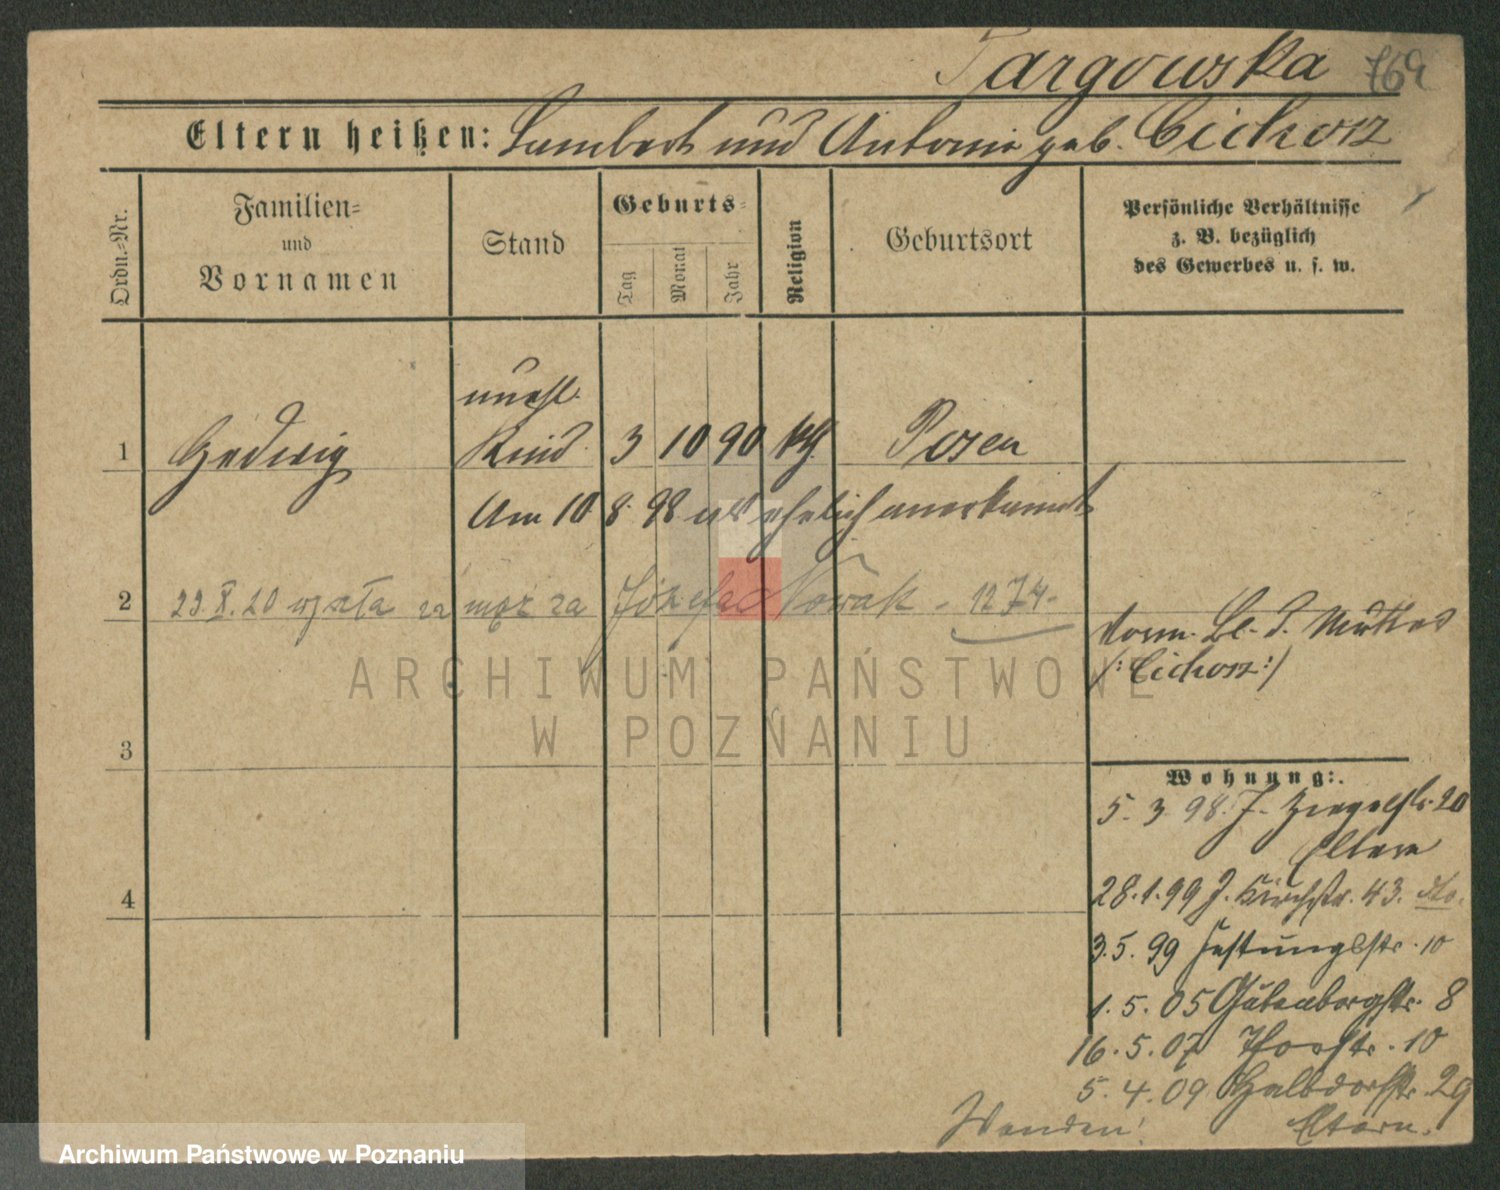 Targowska 769
Eltern heißen: Lambert und Antonie geb. Cichosz
Ordn.-Nr.
Familien-
und
Vornamen
Stand
Geburts-
Tag
Monat
Jahr
Religion
Geburtsort
Persönliche Verhältnisse
z. B. bezüglich
des Gewerbes u. s. w.
unehl.
1 Hedwig Kind 3 10 90 kth. Posen
Am 10 8. 98 als ehelich anerkannt
2 23.X.20 wyszła za mąż za Józefa Nowak - 1274-
vorm. Bl. d. Mutter
/: Cichosz :/
3
Wohnung:
5. 3 98. J. Ziegelstr. 20
Eltern
4
28.1.99 J. Kirchstr. 43. dto.
3.5.99 Festungsstr. 10
1.5.05 Gutenbergstr. 8
16.5.07 Thorstr. 10
5.4.09 Halbdorfstr. 29
Wenden! Eltern.
ARCHIWUM PAŃSTWOWE
W POZNANIU
Archiwum Państwowe w Poznaniu